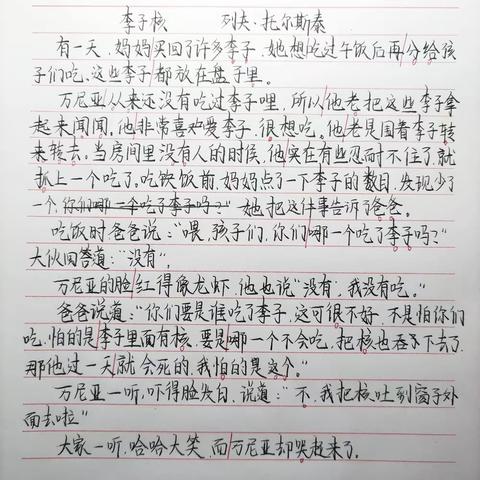 李子核 列夫·托尔斯泰
有一天,妈妈买回了许多李子,她想吃过午饭后再分给孩
子们吃,这些李子都放在盘子里。
万尼亚从来还没有吃过李子哩,所以他老把这些李子拿
起来闻闻,他非常喜欢爱李子,很想吃。他老是围着李子转
来转去。当房间里没有人的时候,他实在有些忍耐不住了,就
抓上一个吃了。吃饮饭前,妈妈点了一下李子的数目,发现少了
一个,你们哪一个吃了李子吗?"她把这件事告诉了爸爸。
吃饭时,爸爸说:"喂,孩子们,你们哪一个吃了李子吗?"
大伙回答道:"没有"。
万尼亚的脸红得像龙虾,他也说"没有,我没有吃。"
爸爸说道:"你们要是谁吃了李子,这可很不好,不是怕你们
吃,怕的是李子里面有核,要是哪一个不会吃,把核也吞下去了,
那他过一天就会死的,我怕的是这个。"
万尼亚一听,吓得脸发白,说道:"不,我把核吐到窗子外
面去啦"
大家一听,哈哈大笑,而万尼亚却哭起来了。